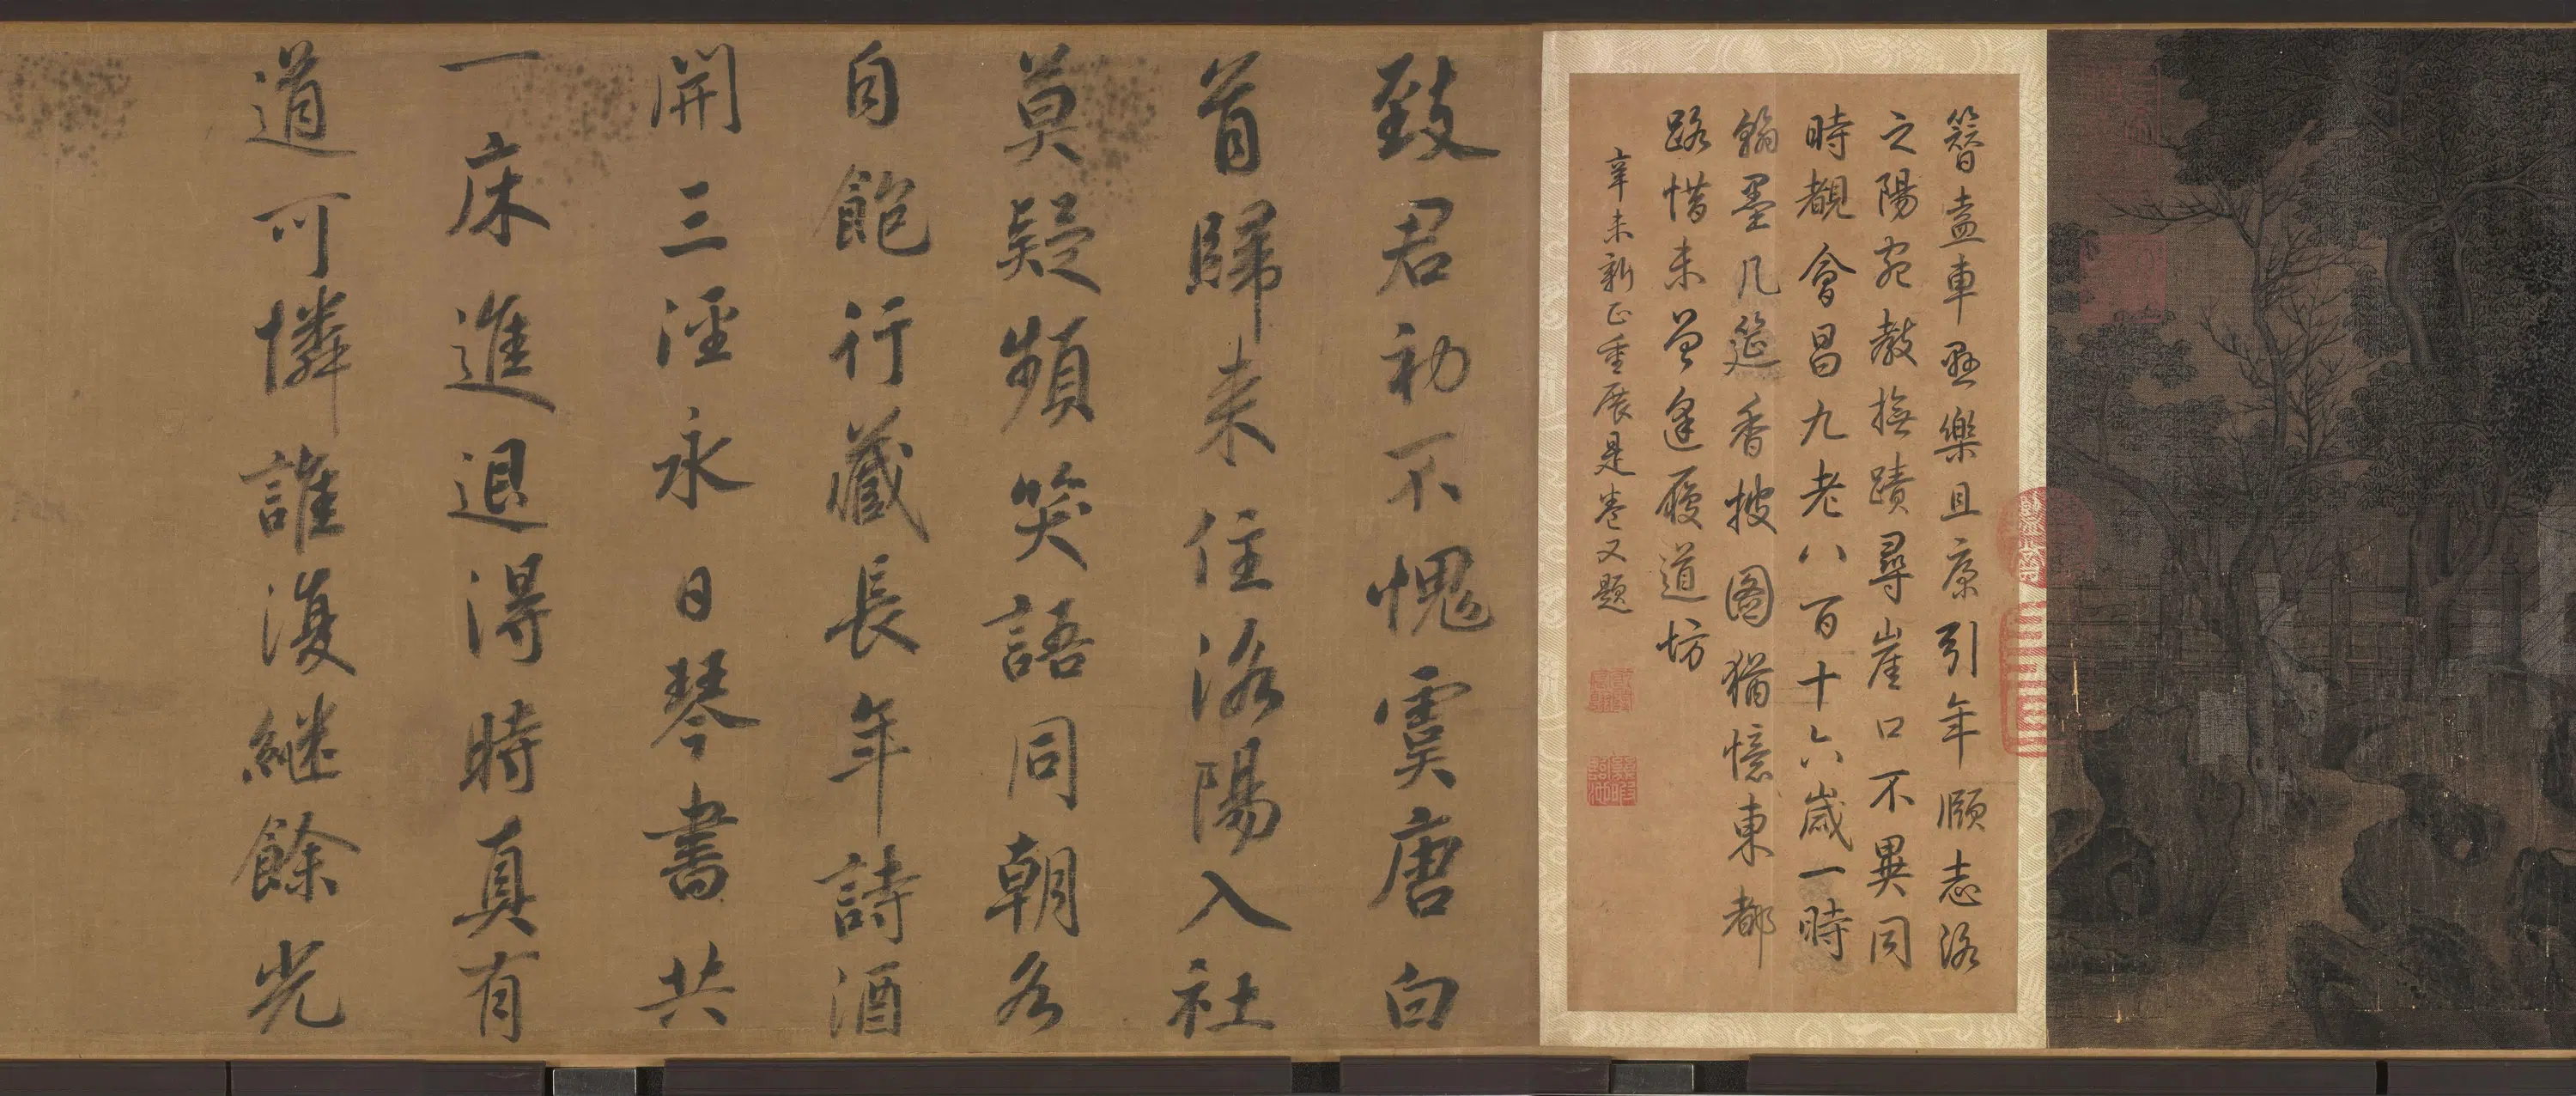 簪盍車懸樂且康引年頤志洛
之陽宛教撫蹟尋崖口不異同
時覩會昌九老八百十六歲一時
翰墨几筵香披圖猶憶東都
路惜未曾逢履道坊
辛未新正重展是卷又題
致君初不愧虞唐白
首歸来住洛陽入社
莫疑頻笑語同朝各
自飽行藏長年詩酒
開三溼永日琴書共
一床進退得時真有
道可憐誰復繼餘光